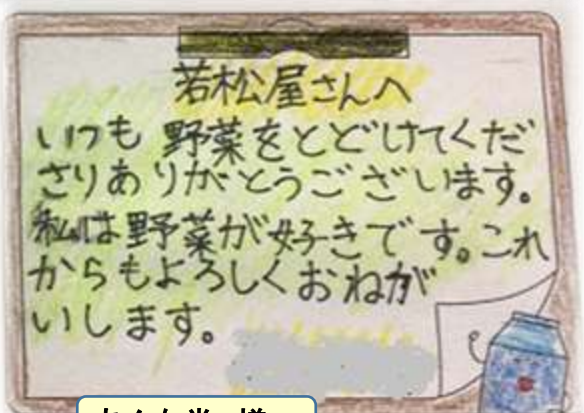 若松屋さんへ
いつも野菜をとどけてくだ
さりありがとうございます。
私は野菜が好きです。これ
からもよろしくおねが
いします。